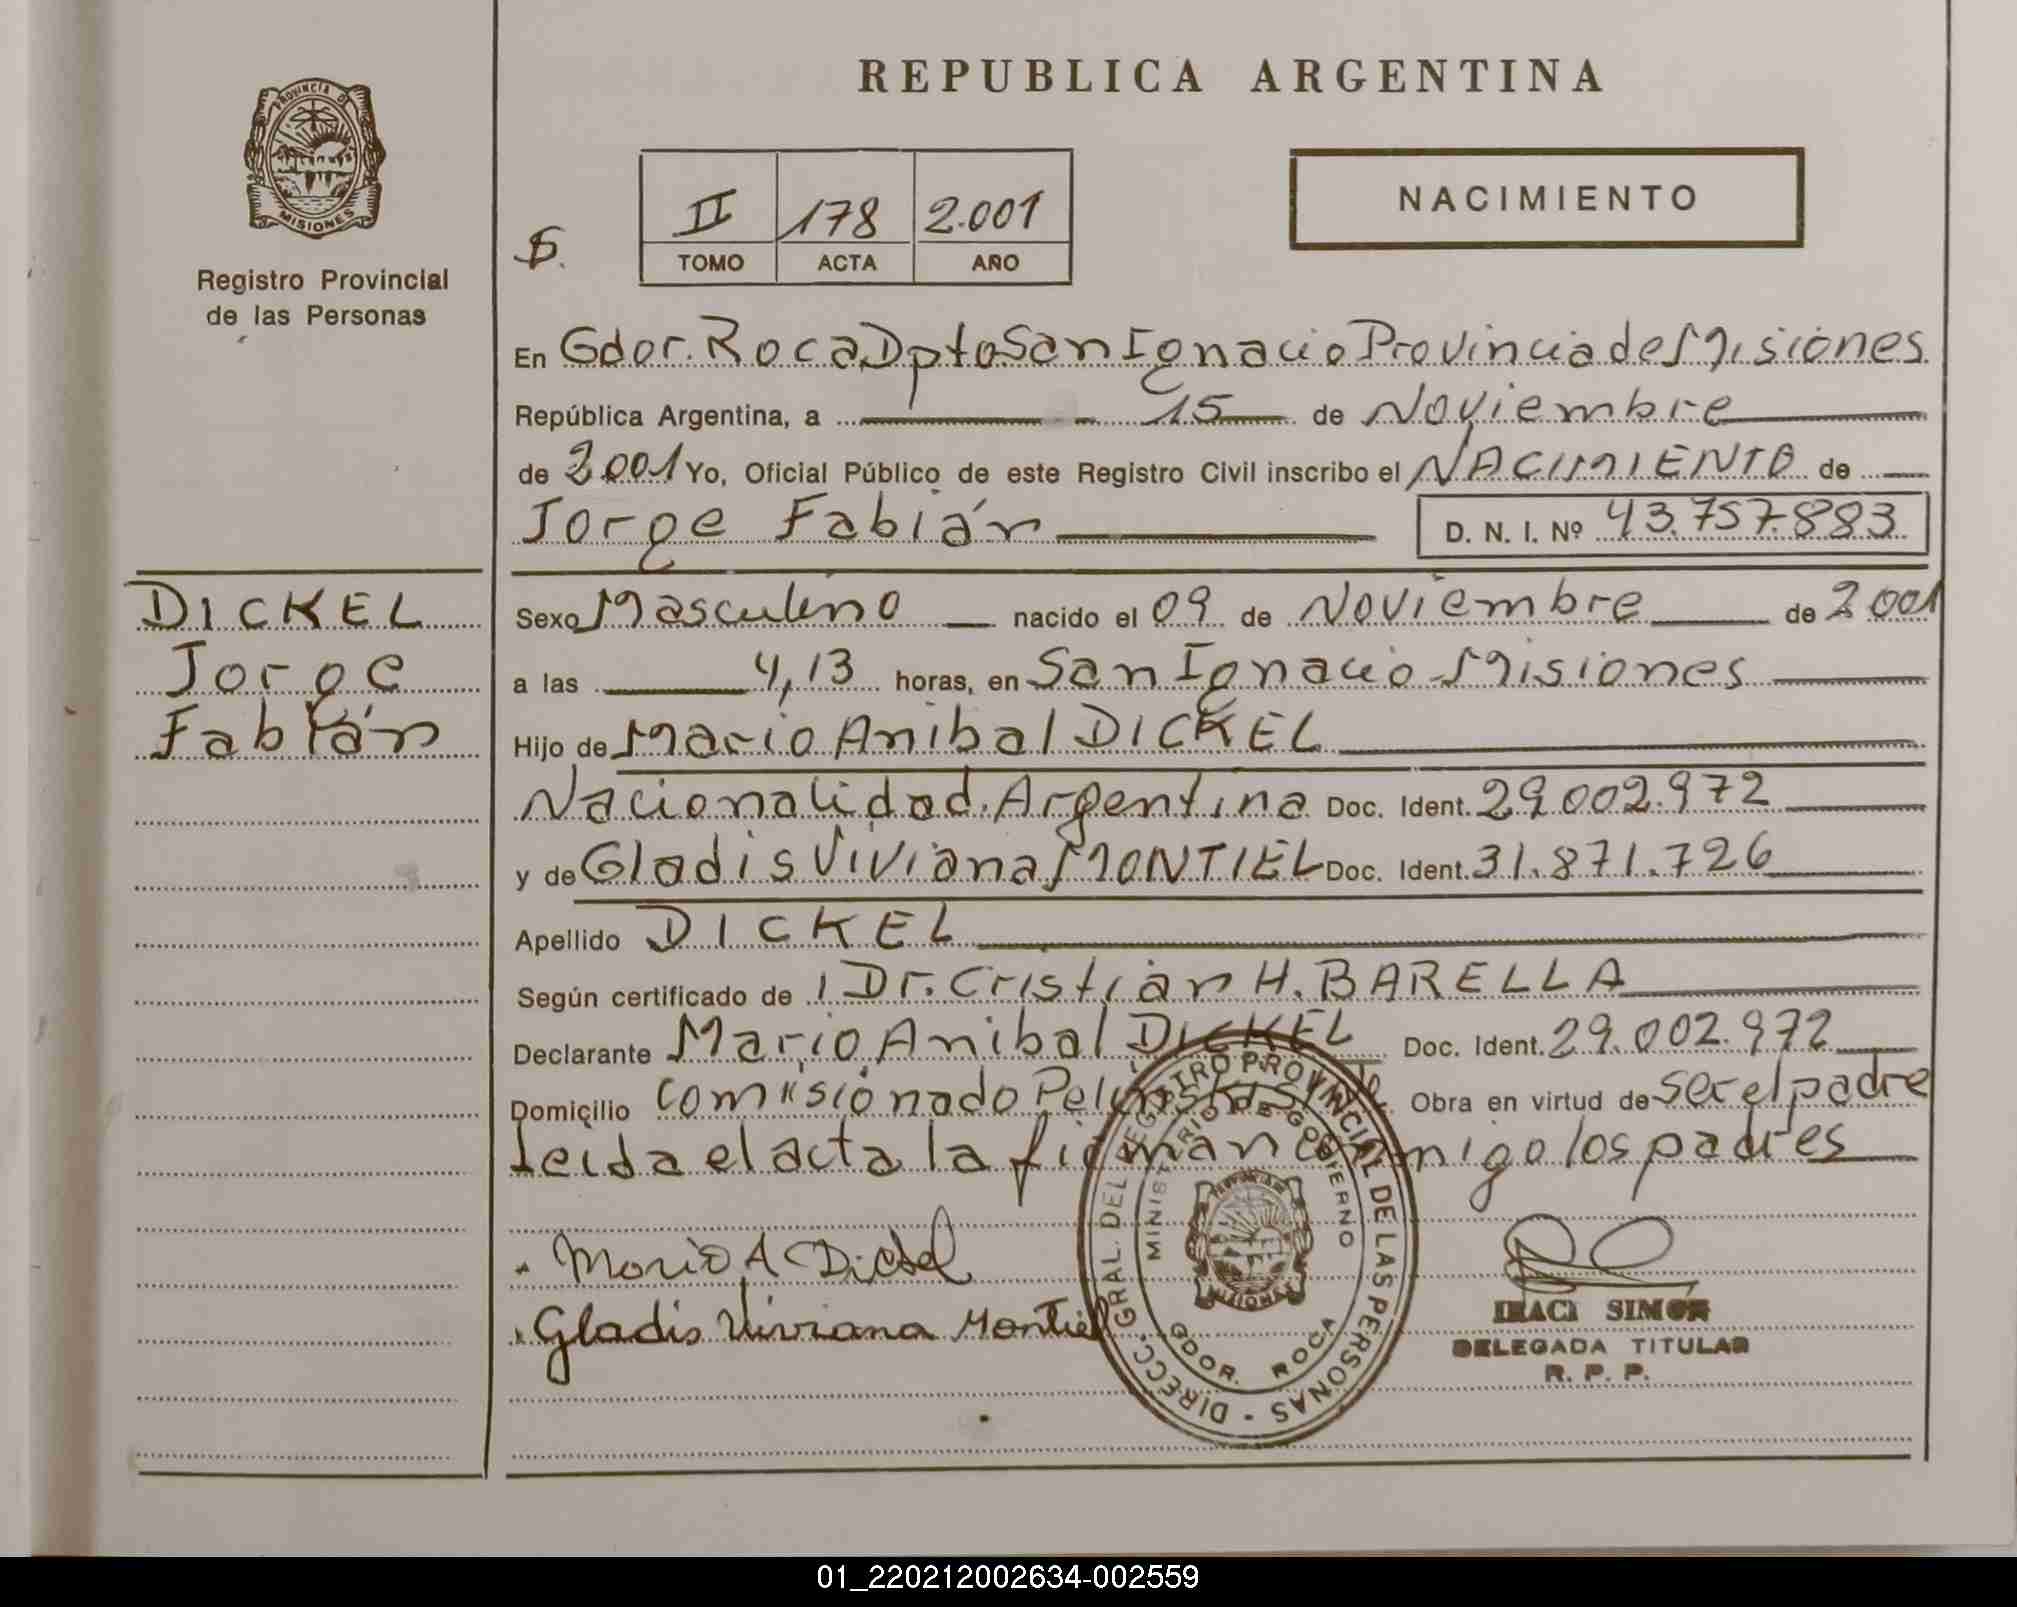 REPUBLICA ARGENTINA
PROVINCIA DE
MISIONES
Registro Provincial
de las Personas
II 178 2.001
TOMO ACTA AÑO
NACIMIENTO
En Gdor. Roca Dpto San Ignacio Provincia de Misiones
República Argentina, a 15 de Noviembre
de 2001 Yo, Oficial Público de este Registro Civil inscribo el NACIMIENTO de
Jorge Fabián D. N. I. Nº 43.757.883
DICKEL
Jorge
Fabián
Sexo Masculino nacido el 09 de Noviembre de 2001
a las 4,13 horas, en San Ignacio Misiones
Hijo de Mario Anibal DICKEL
Nacionalidad Argentina Doc. Ident. 29.002.972
y de Gladis Viviana MONTIEL Doc. Ident. 31.871.726
Apellido DICKEL
Según certificado de Dr. Cristian H. BARELLA
Declarante Mario Anibal DICKEL Doc. Ident. 29.002.972
Domicilio Obra en virtud de ser el padre
Leida el acta la firman conmigo los padres
Mario A Dickel
Gladis Viviana Montiel
DIRECC. GRAL. DEL REGISTRO PROVINCIAL DE LAS PERSONAS
MINISTERIO DE GOBIERNO
GDOR. ROCA
IRACI SIMON
DELEGADA TITULAR
R. P. P.
01_220212002634-002559